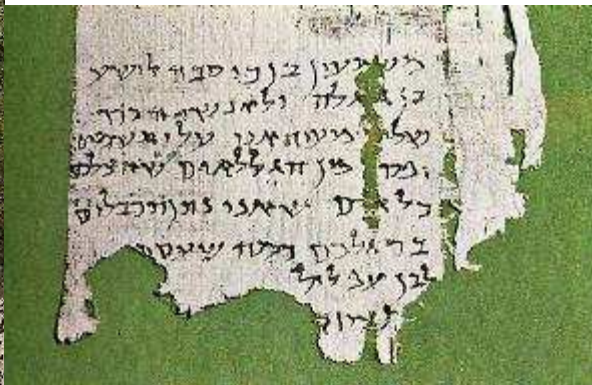 משמעון בן כוסבה לישע
בן גלגלה ולאנשי הכרך
שלום מעיד אני עלי תשמים
מן הגללאים שהצלכם
כל אדם שאני נותן תכבלים
ברגלכם כמה שעסתי
לבן עפלול